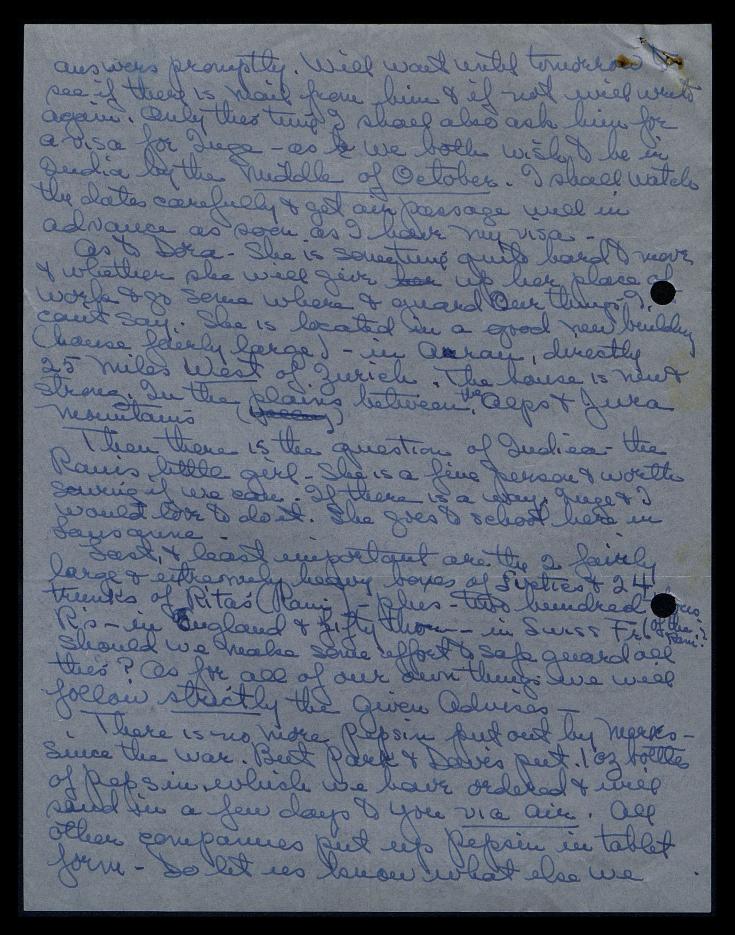 answers promptly. Will wait until tomorrow to
see if there is mail from him & if not will write
again. Only this time I shall also ask him for
a visa for Inge - as we both wish to be in
India by the Middle of October. I shall watch
the dates carefully & get air passage well in
advance as soon as I have my visa -
As to Dora - She is something quite hard to move
& whether she will give up her place of
work & go some where & guard Our things. I
can't say. She is located in a good new building
(house fairly large) - in Aarau, directly
25 miles West of Zurich. The house is new &
strong. In the plains between the Alps & Jura
Mountains
Then there is the question of Indira - the
Ranis little girl - She is a fine person & worth
saving if we can. If there is a way, Inge & I
would love to do it. She goes to school here in
Lausanne -
Last, & least important are the 2 fairly
large & extremely heavy boxes of Sixties & 24
trunks of Rita's (Rani - plus - two hundred
Rs - in England & fifty thou-- in Swiss Fr. (of the Rani?)
Should we make some effort to safe guard all
this? As for all of our own things we will
follow strictly the given Advises -
There is no more Pepsin put out by Mercks -
since the war. But Park & Davis put 1 oz bottles
of Pepsin, which we have ordered & will
send in a few days to you via air. All
other companies put up Pepsin in tablet
form - So let us know what else we